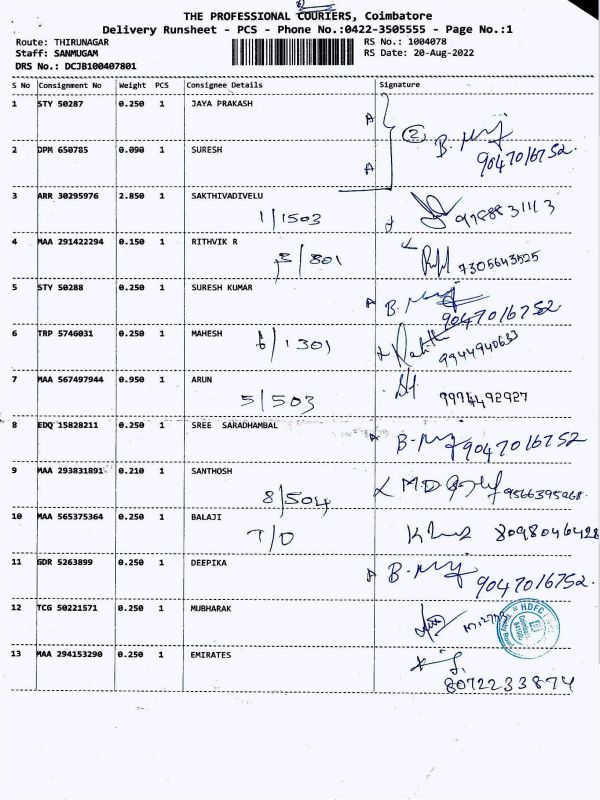 THE PROFESSIONAL COURIERS, Coimbatore
Delivery Runsheet - PCS - Phone No.:0422-3505555 - Page No.:1
Route: THIRUNAGAR
RS No.: 1004078
Staff: SANMUGAM
RS Date: 20-Aug-2022
DRS No.: DCJB100407801
S No Consignment No Weight PCS Consignee Details Signature
1 STY 50287 0.250 1 JAYA PRAKASH A
2 B.
2 DPM 650785 0.090 1 SURESH A 9047016752.
3 ARR 30295976 2.850 1 SAKTHIVADIVELU
1/1503
4 MAA 291422294 0.150 1 RITHVIK R
3/801 7305643525
5 STY 50288 0.250 1 SURESH KUMAR A B.
9047016752
6 TRP 5746031 0.250 1 MAHESH
6/1301 9944940633
7 MAA 567497944 0.950 1 ARUN
5/503 9994492927
8 EDQ 15828211 0.250 1 SREE SARADHAMBAL A B- 9047016752
9 MAA 293831891 0.210 1 SANTHOSH
8/504 MD 9566395068.
10 MAA 565375364 0.250 1 BALAJI
T/O 8098046428
11 GDR 5263899 0.250 1 DEEPIKA A B-
9047016752.
12 TCG 50221571 0.250 1 MUBHARAK
HDFC
13 MAA 294153290 0.250 1 EMIRATES
8072233874